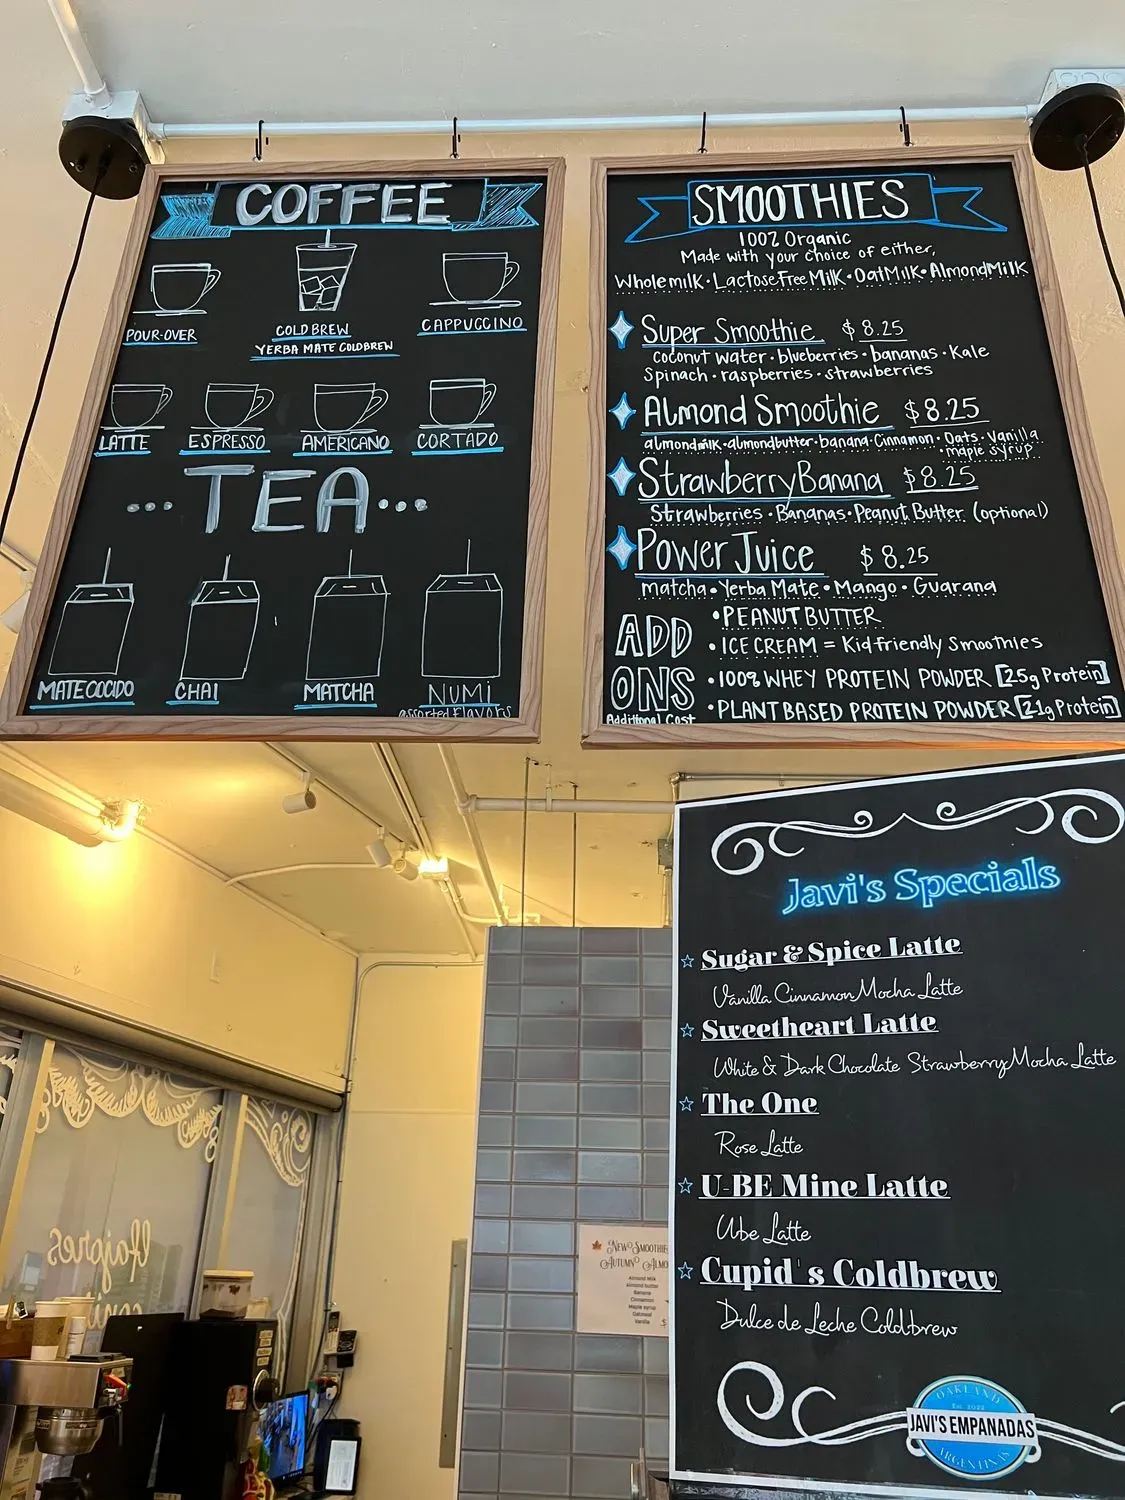 COFFEE
POUR-OVER
COLD BREW
YERBA MATE COLDBREW
CAPPUCCINO
LATTE
ESPRESSO
AMERICANO
CORTADO
...TEA...
MATECOCIDO
CHAI
MATCHA
NUMi
assorted flavors
SMOOTHIES
100% Organic
Made with your choice of either,
Whole milk • Lactose Free Milk • Oat Milk • Almond Milk
Super Smoothie $8.25
coconut water • blueberries • bananas • Kale
Spinach • raspberries • strawberries
Almond Smoothie $8.25
almondmilk • almondbutter • banana • Cinnamon • Oats • Vanilla
• maple syrup
Strawberry Banana $8.25
Strawberries • Bananas • Peanut Butter (optional)
Power Juice $8.25
matcha • Yerba Mate • Mango • Guarana
ADD
ONS
Additional Cost
• PEANUT BUTTER
• ICE CREAM = Kid friendly Smoothies
• 100% WHEY PROTEIN POWDER [25g Protein]
• PLANT BASED PROTEIN POWDER [21g Protein]
Javi's Specials
☆ Sugar & Spice Latte
Vanilla Cinnamon Mocha Latte
☆ Sweetheart Latte
White & Dark Chocolate Strawberry Mocha Latte
☆ The One
Rose Latte
☆ U-BE Mine Latte
Ube Latte
☆ Cupid's Coldbrew
Dulce de Leche Coldbrew
OAKLAND
Est. 2022
JAVI'S EMPANADAS
ARGENTINAS
New Smoothie
Autumn Almo
Almond Milk
Almond butter
Banana
Cinnamon
Maple syrup
Oatmeal
Vanilla